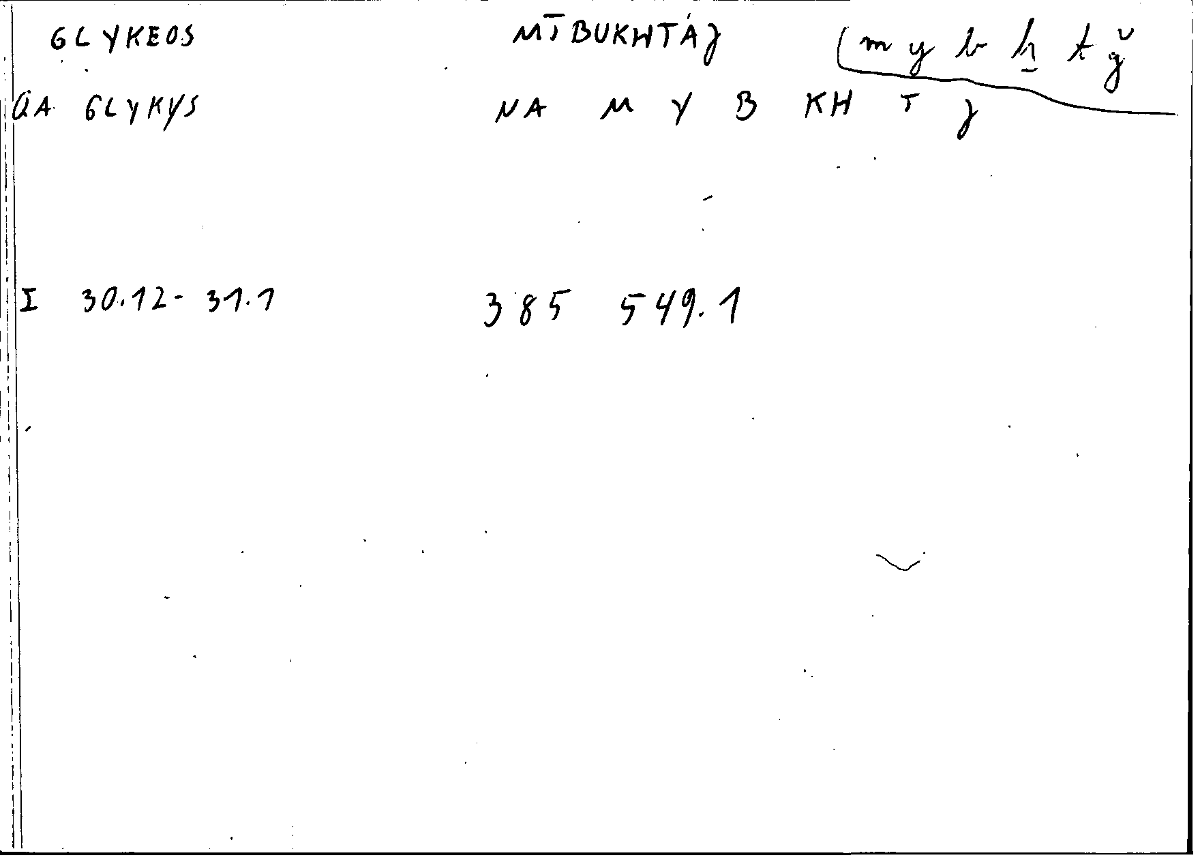 GLYKEOS MĪBUKHTAJ (m y b ẖ t ǧ
QA GLYKYS NA M Y B KH T J
I 30.12- 31.1 385 549.1